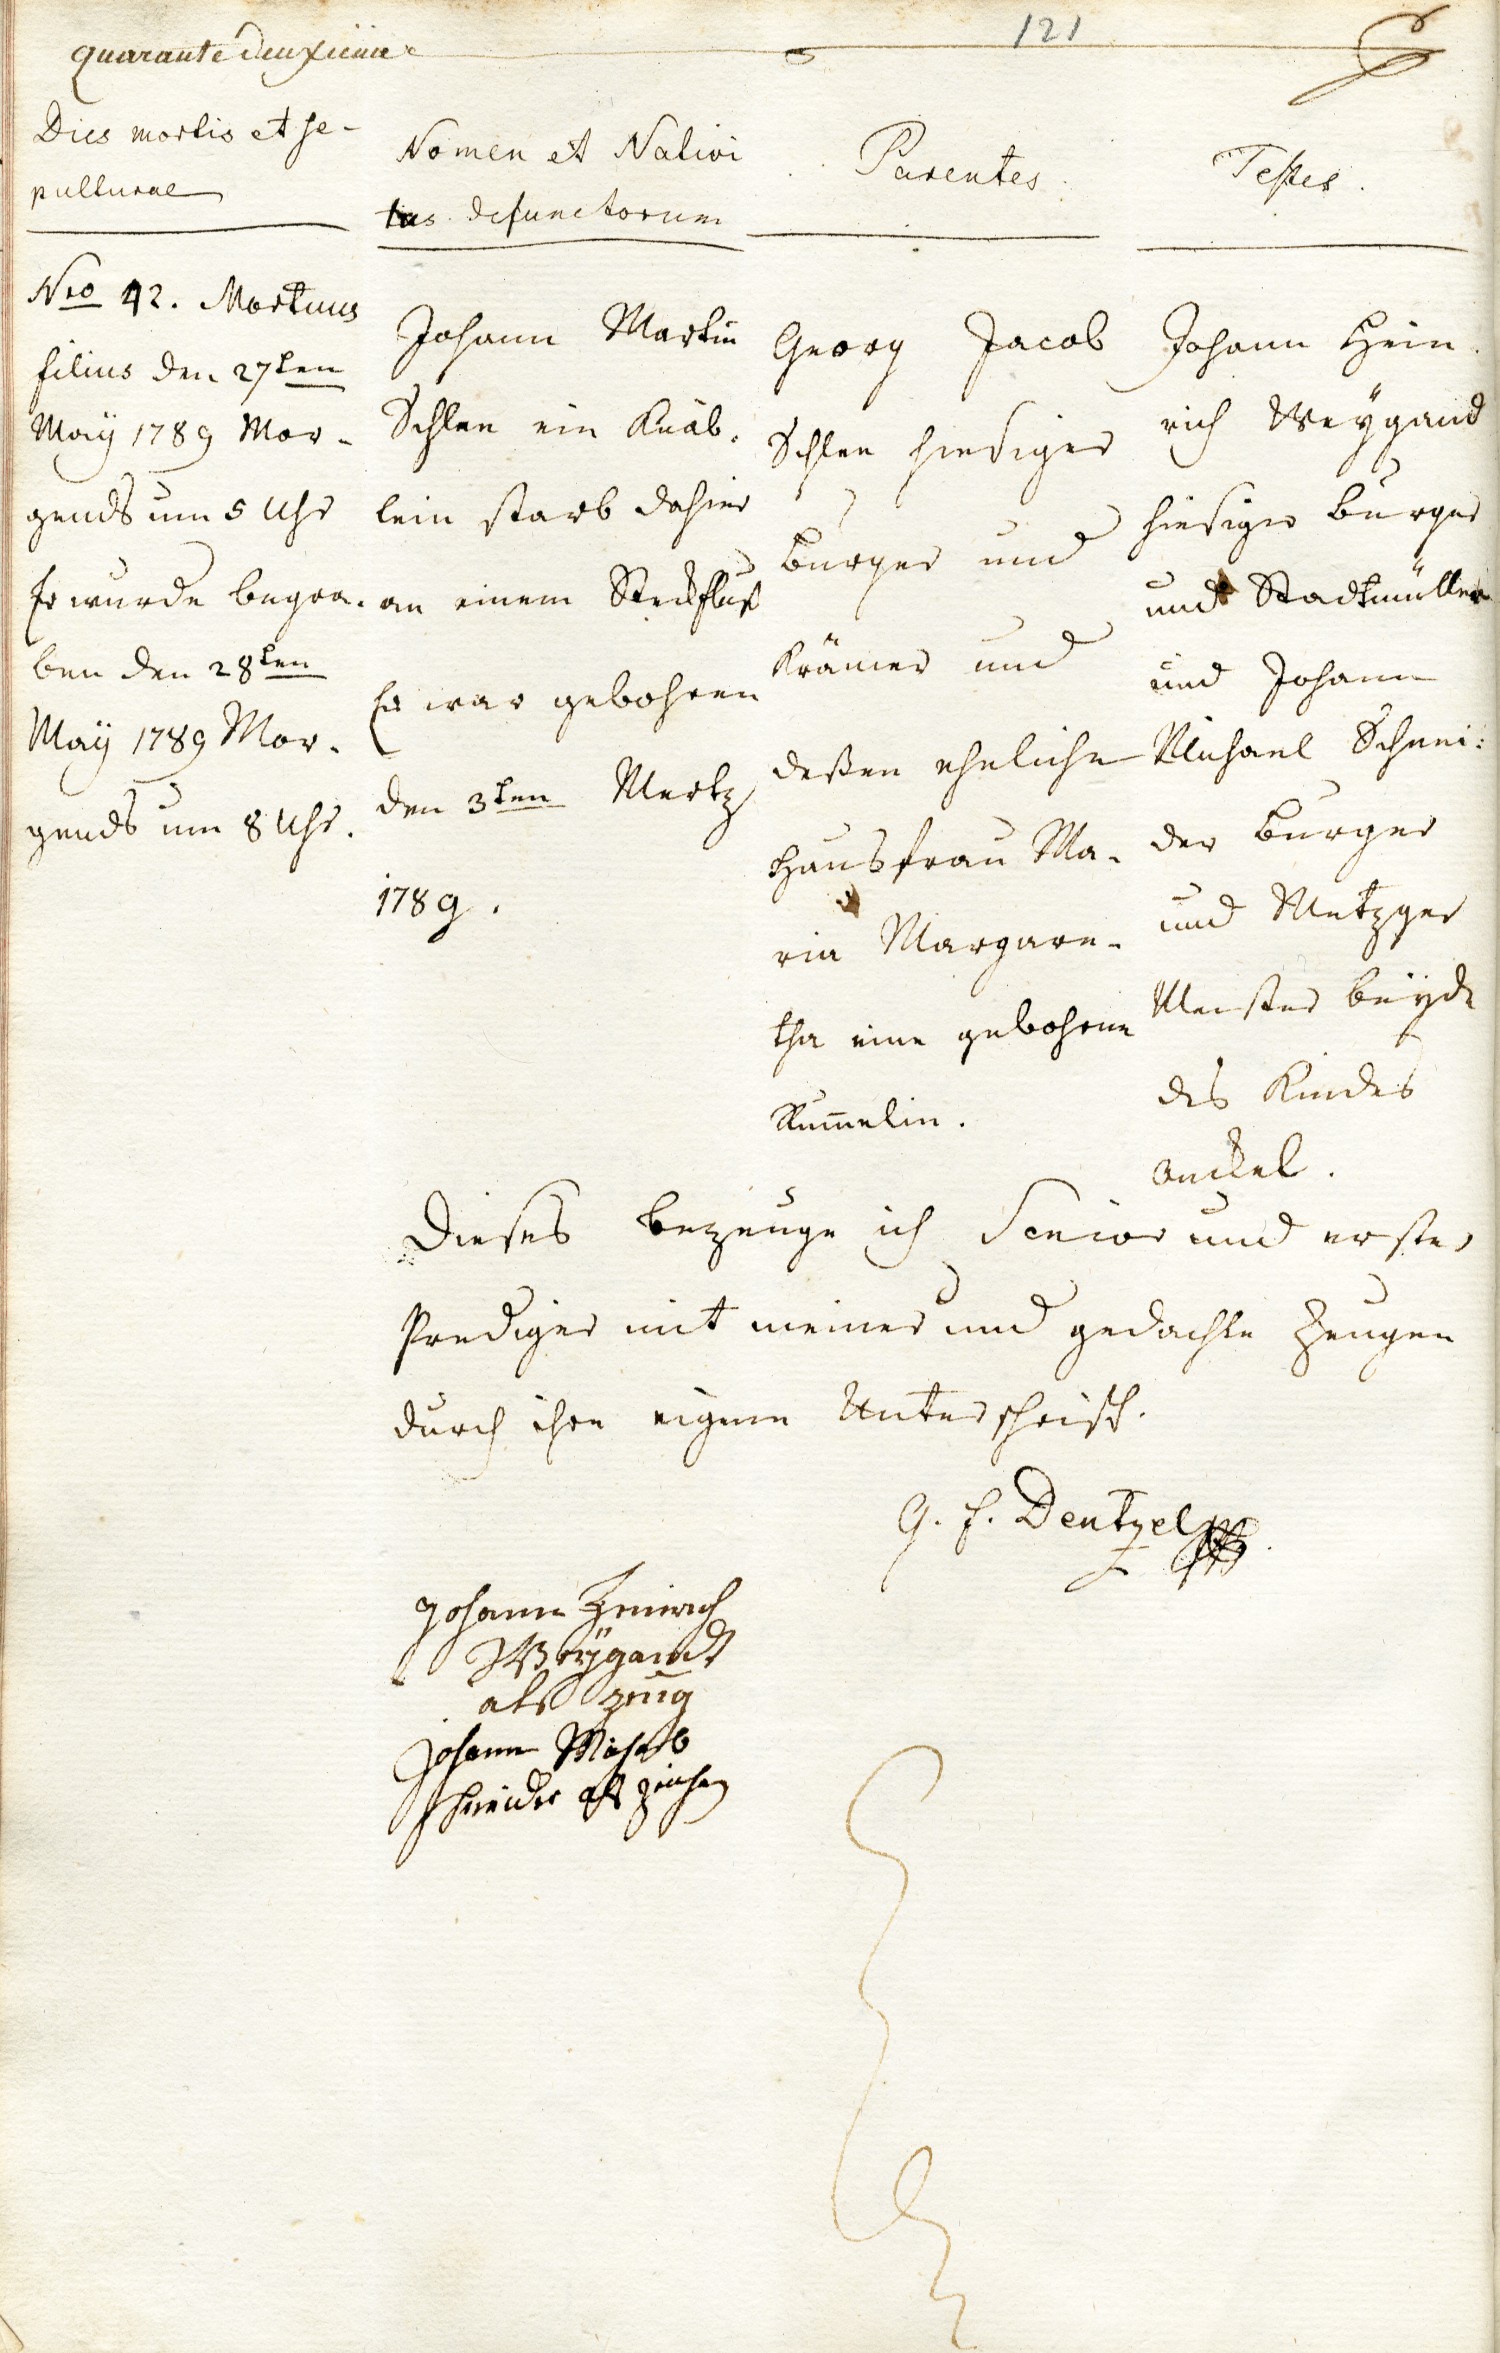 quarante deuxieme
121
Dies mortis et se-
pulturae
Nro 42. Mortuus
filius den 27ten
Maÿ 1789 Mor-
gends um 5 Uhr
Er wurde begra-
ben den 28ten
Maÿ 1789 Mor-
gends um 8 Uhr.
Nomen et Nativi
tas defunctorum
Johann Martin
Schlee ein Knäb-
lein starb dahier
an einem Steckfluß
Er war gebohren
den 3ten Mertz
1789.
Parentes
Georg Jacob
Schlee hiesiger
burger und
Krämer und
deßen eheliche
hausfrau Ma-
ria Margare-
tha eine gebohrne
Rum̄elin.
Testes.
Johann Hein
rich Weÿgand
hiesiger burger
und Stadtmüller
und Johann
Michael Schnei-
der burger
und Metzger
Meister beÿde
des Kindes
onckel.
Dieses bezeuge ich Senior und erster
Prediger mit meiner und gedachte Zeugen
durch ihre eigene Unterschrift.
G. F. Dentzel
Johann Heinrich
Weÿgandt
als zeug
Johann Michael
Schneider als zeichen